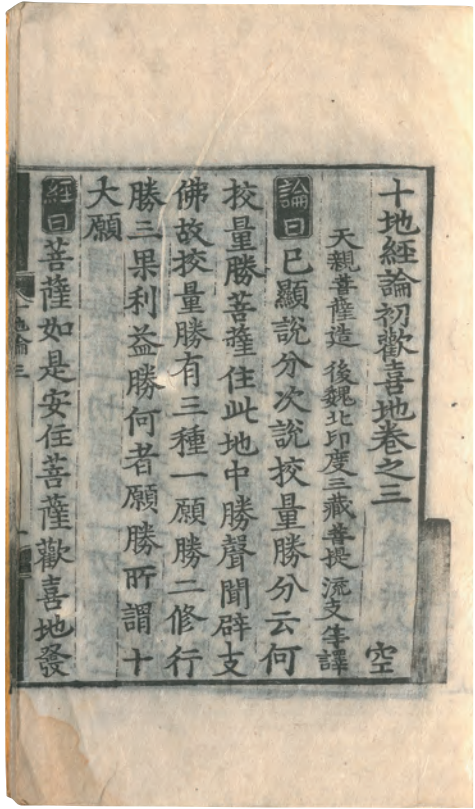 十地經論初歡喜地卷之三 空
天親菩薩造 後魏北印度三藏菩提流支等譯
論曰 已顯說分次說挍量勝分云何
挍量勝菩薩住此地中勝聲聞辟支
佛故挍量勝有三種一願勝二修行
勝三果利益勝何者願勝所謂十
大願
經曰 菩薩如是安住菩薩歡喜地發
地論三